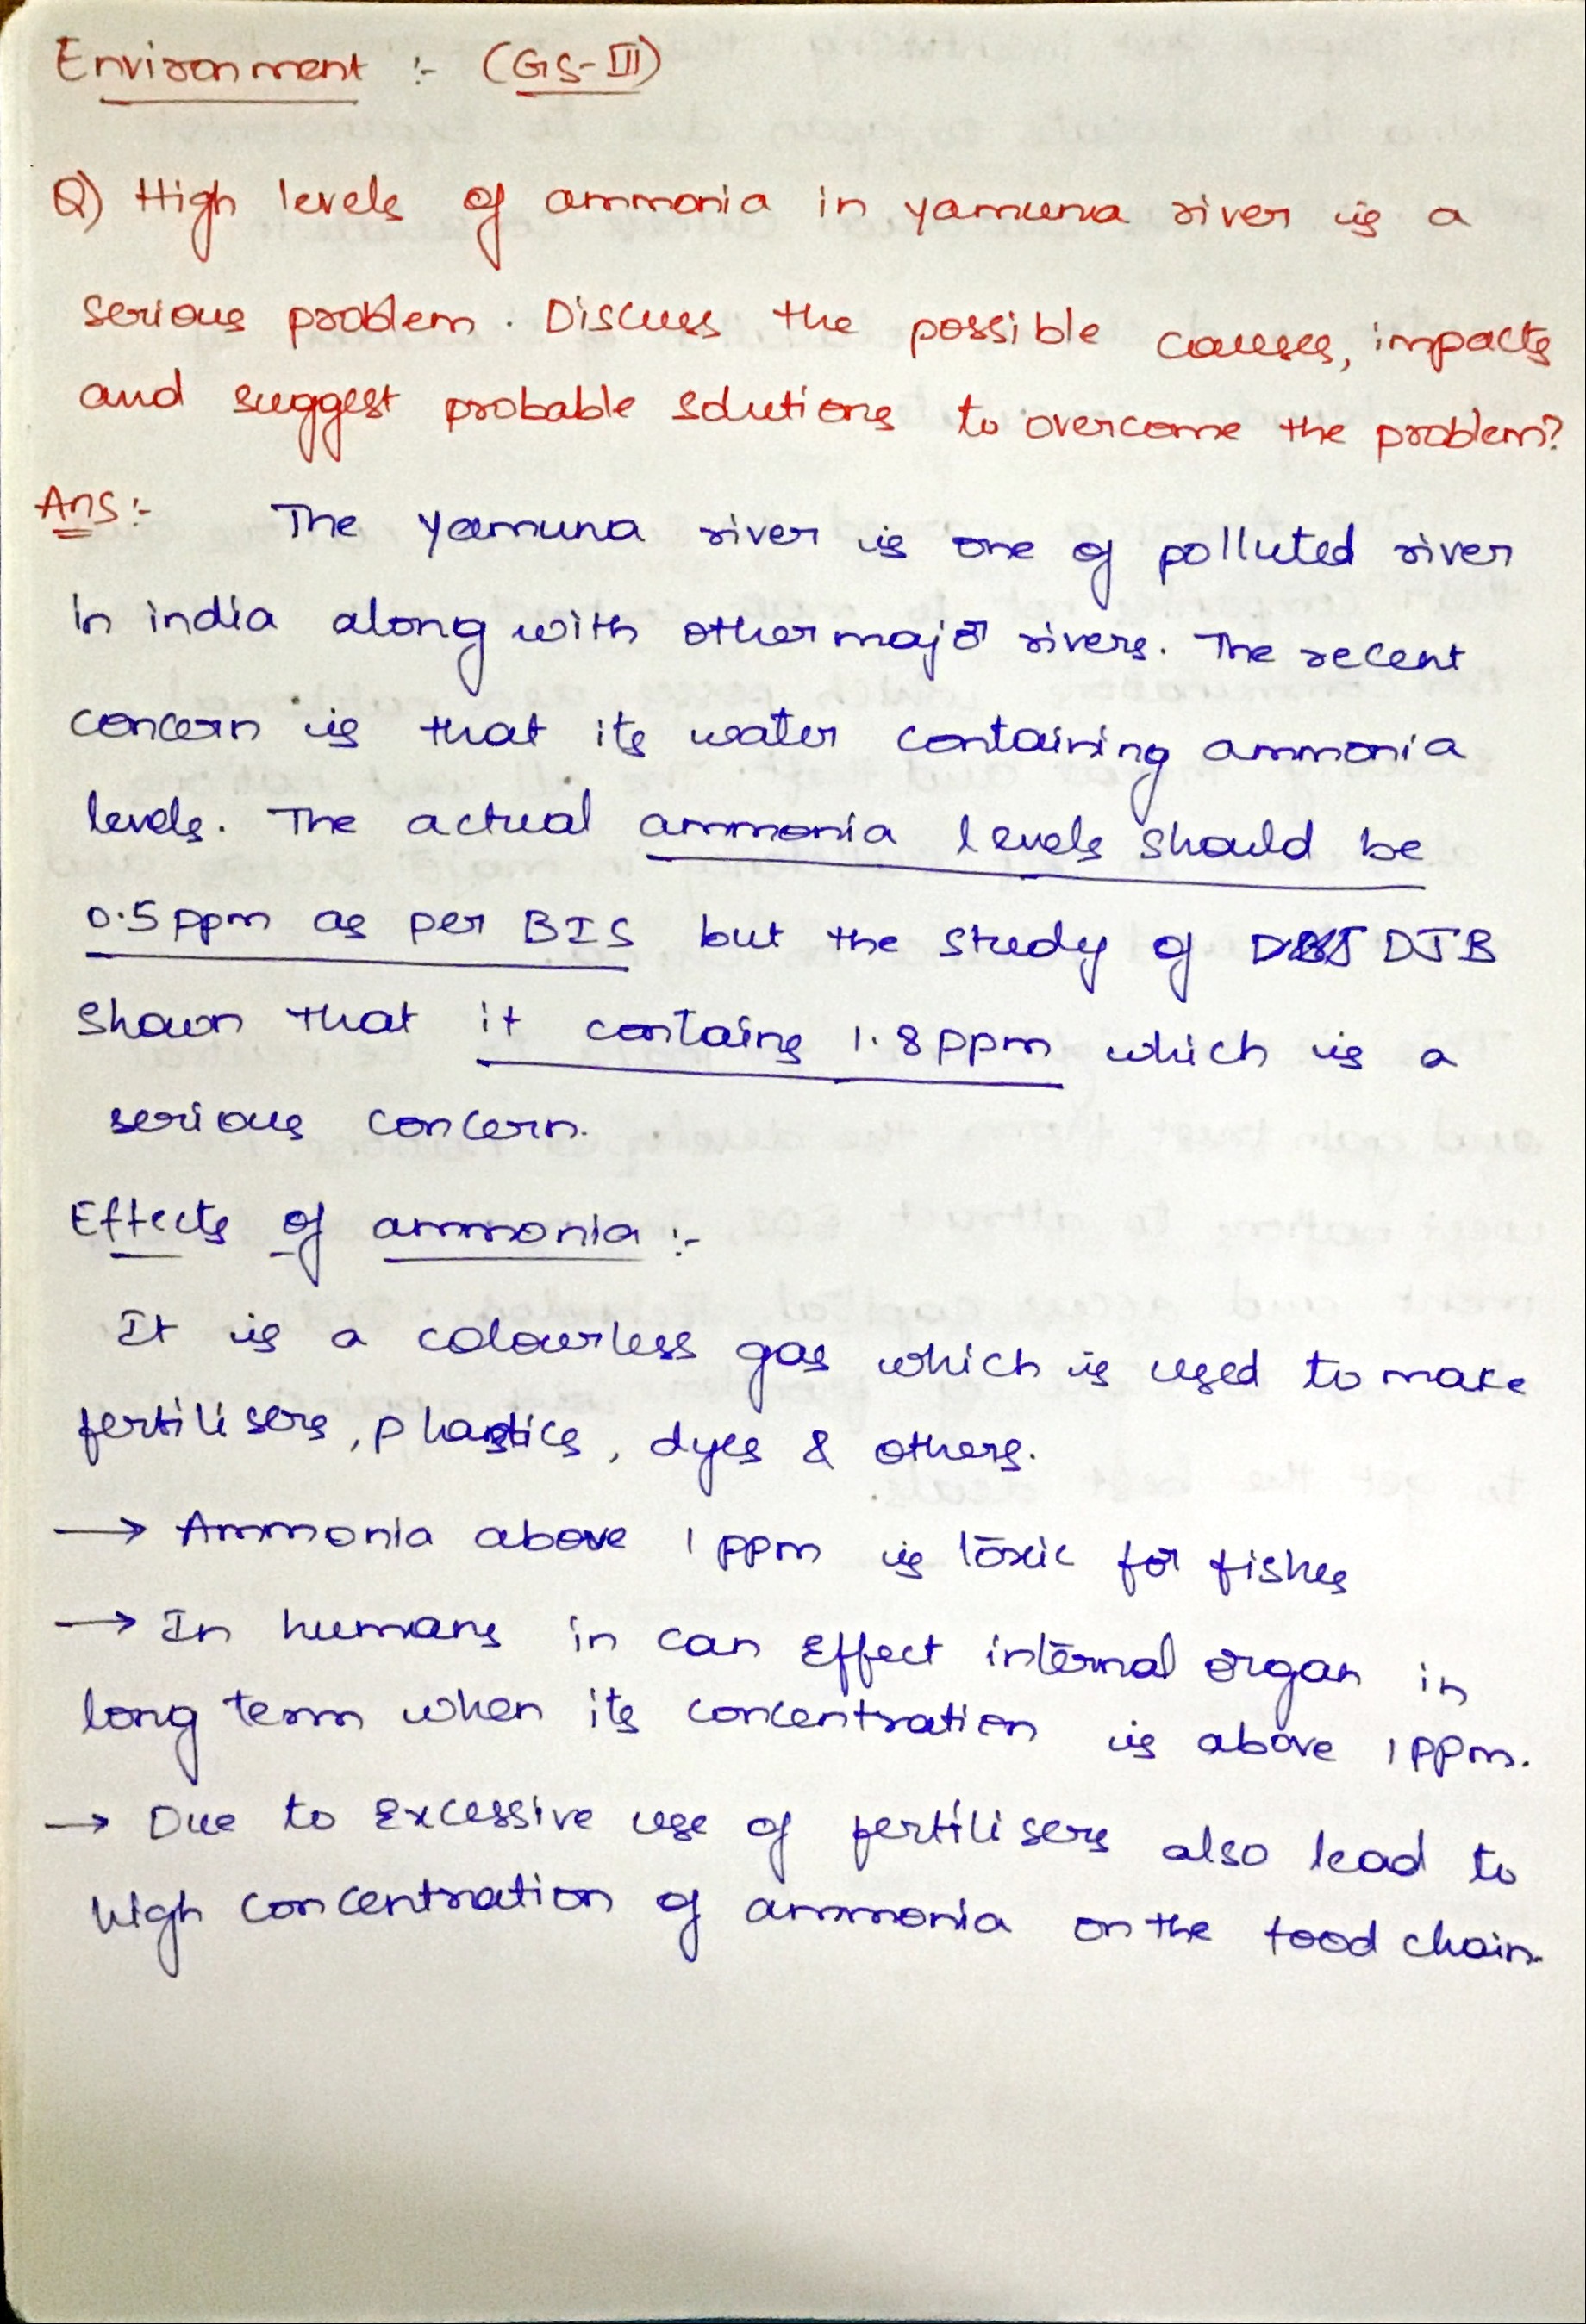 Environment :- (GS-III)
Q) High levels of ammonia in yamuna river is a
serious problem. Discuss the possible causes, impacts
and suggest probable solutions to overcome the problem?
Ans:- The Yamuna river is one of polluted river
in india along with other major rivers. The recent
concern is that its water containing ammonia
levels. The actual ammonia levels should be
0.5ppm as per BIS but the study of DJB
shown that it contains 1.8ppm which is a
serious concern.
Effects of ammonia :-
It is a colourless gas which is used to make
fertilisers, plastics, dyes & others.
→ Ammonia above 1ppm is toxic for fishes
→ In humans in can Effect internal organ in
long term when its concentration is above 1ppm.
→ Due to Excessive use of fertilisers also lead to
high concentration of ammonia on the food chain.